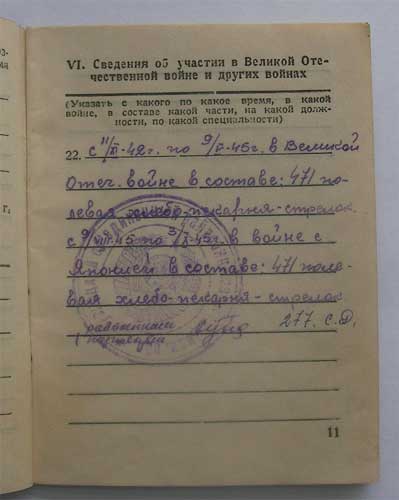 VI. Сведения об участии в Великой Оте-
чественной войне и других войнах
(Указать с какого по какое время, в какой
войне, в составе какой части, на какой долж-
ности, по какой специальности)
22. с 11/III-42г. по 9/V-45г. в Великой
Отеч. войне в составе: 471 по-
левая хлебо-пекарня-стрелок
с 9/VIII-45 по 3/IX-45г. в войне с
Японией в составе: 471 поле-
вая хлебо-пекарня-стрелок.
277. С.Д.
11